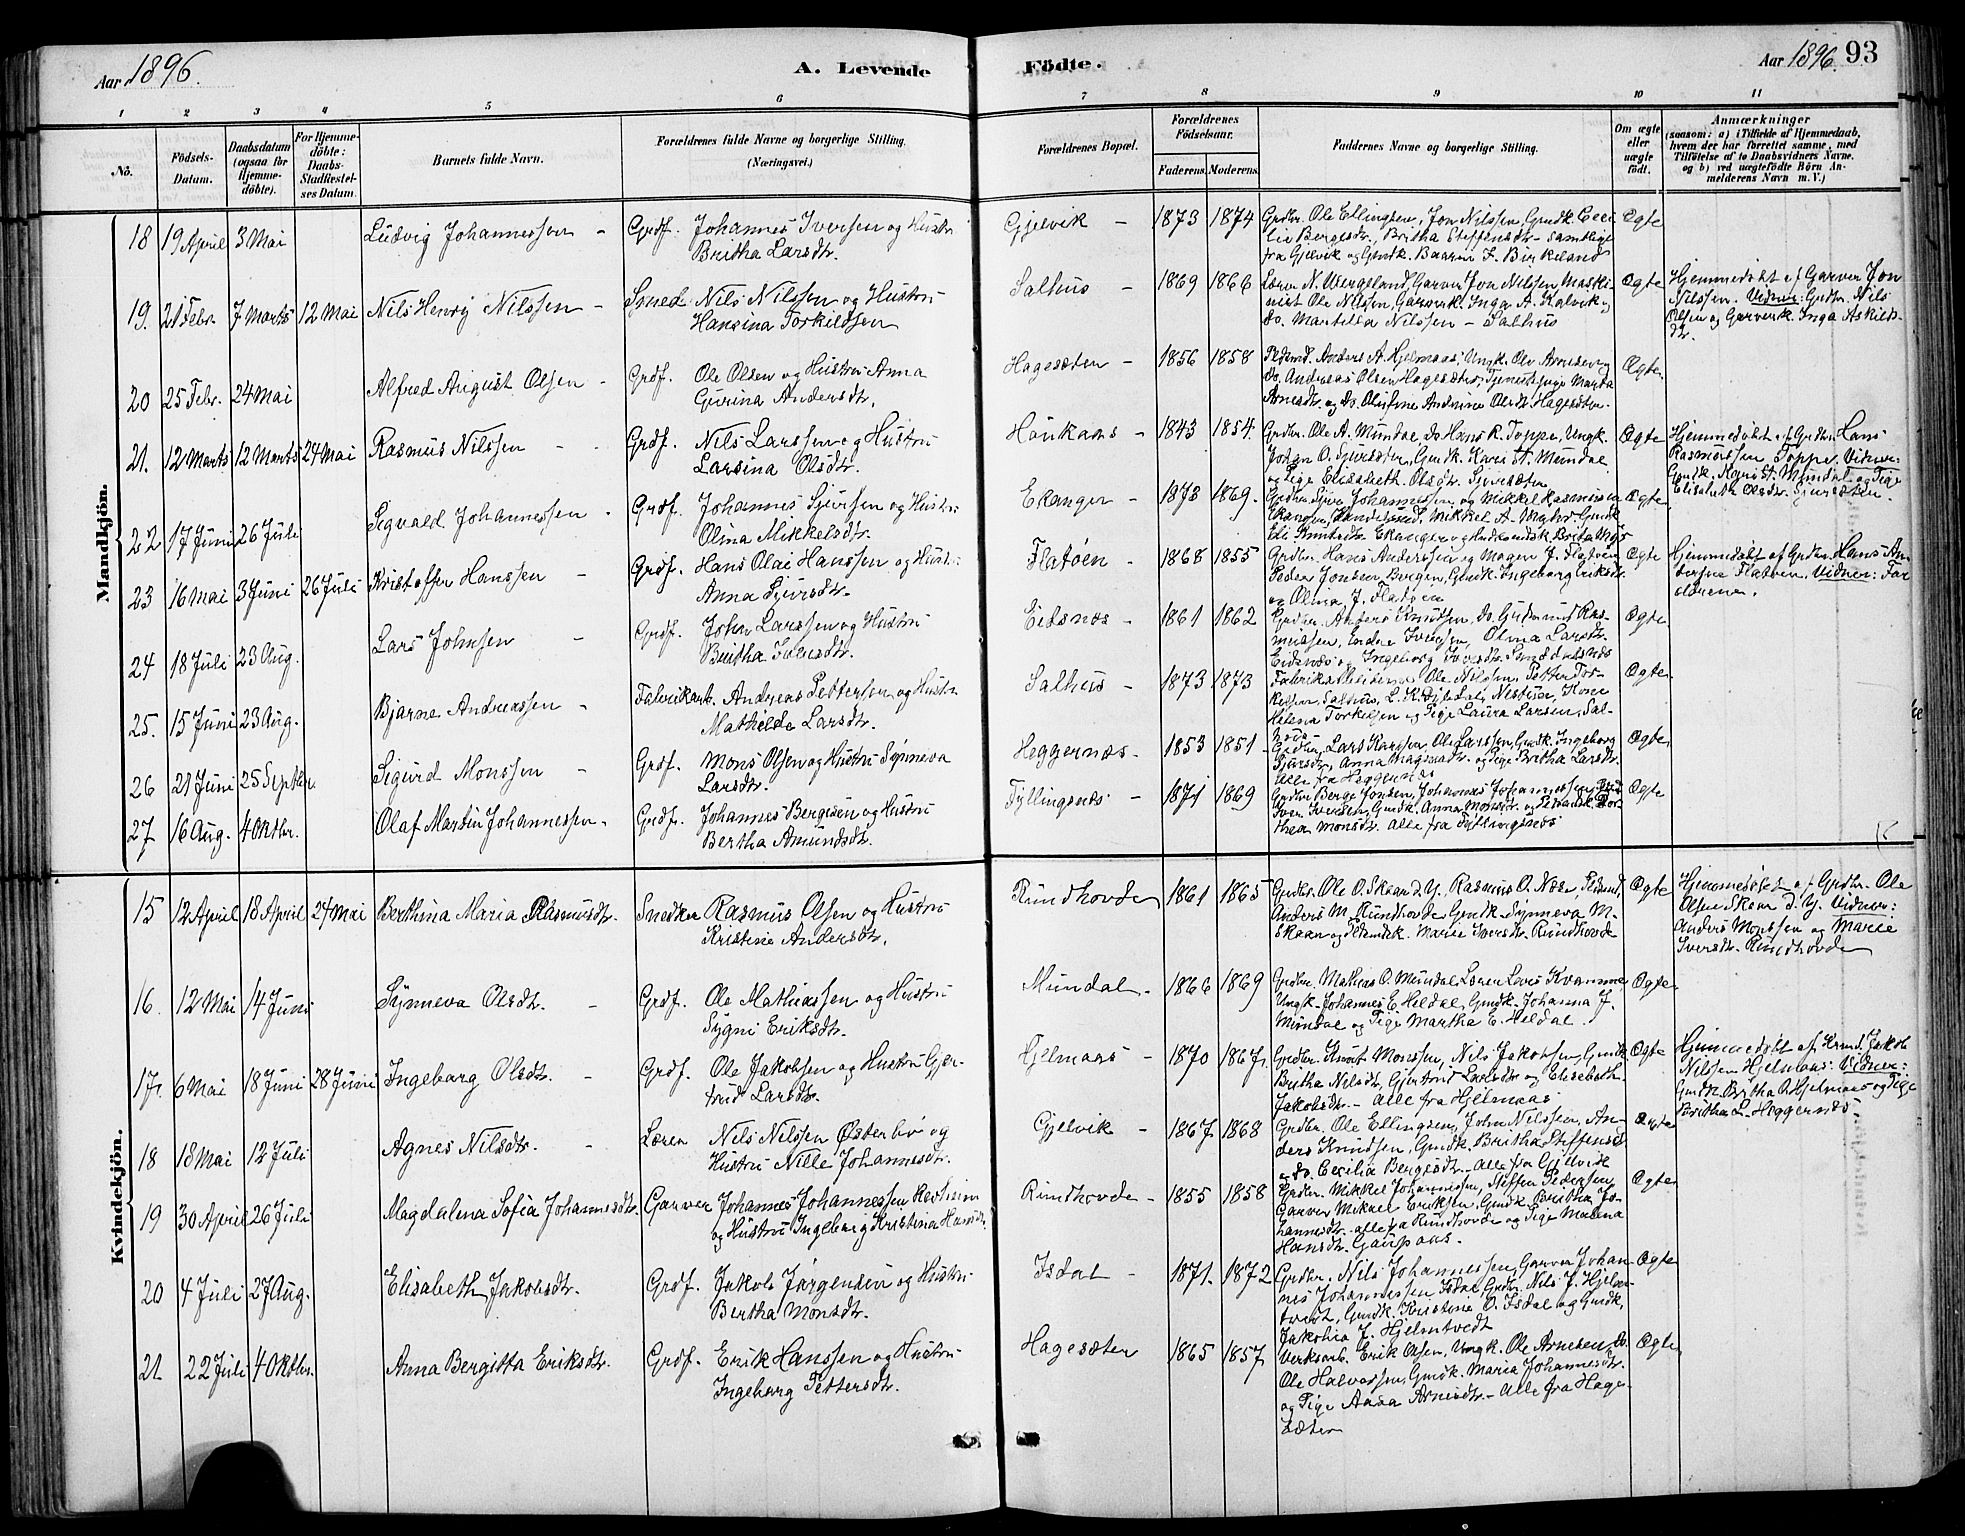 Aar 1896.
A. Levende
Födte.
Aar 1896. 93
1 2 3 4 5 6 7 8 9 10 11
No.
Födsels-
Datum.
Daabsdatum
(ogsaa for
Hjemme-
döbte).
For Hjemme-
döbte:
Daabs-
Stadfæstel-
ses Datum.
Barnets fulde Navn.
Forældrenes fulde Navne og borgerlige Stilling.
(Næringsvei.)
Forældrenes Bopæl.
Forældrenes
Födselsaar.
Faderens. Moderens.
Faddernes Navne og borgerlige Stilling.
Om ægte
eller
uægte
födt.
Anmærkninger
(saasom: a) i Tilfælde af Hjemmedaab,
hvem der har forrettet samme, med
Tilföielse af to Daabsvidners Navne.
og b) ved uægtefödte Börn An-
melderens Navn m. V.)
Mandkjön.
18 19 April 3 Mai Ludvig Johannessen - Grdf. Johannes Iversen og Hustru
Britha Larsdtr.
Gjelvik - 1873 1874 Grdbr. Ole Ellingsen, Jon Nilssen, Gmdk. Ceci-
lie Bergesdtr., Britha Steffensdtr - samtlige
fra Gjelvik og Gmdk. Baarni J. Birkeland
Ægte
19. 21 Febr. 7 Marts 12 Mai Nils Henrij Nilssen - Smed Nils Nilssen og Hustru
Hansina Torkildsen
Salhus - 1869 1866 Lærer N. Wergeland, Garver Jon Nilsen, Maski-
nist Ole Nilsen, Garverk. Inga A. Kalvik og
do. Martella Nilssen - Salhus
Ægte
Hjemmedøbt af Garver Jon
Nilssen. Vidner: Grdbr. Nils
Olsen og Garverk. Inga Askilds-
dtr.
20 25 Febr. 24 Mai Alfred August Olsen - Grdf. Ole Olsen og Hustru Anna
Gurina Andersdtr.
Hagesæter - 1856 1858 Pldsmd. Anders A. Hjelmaas, Ungk. Ole Arnesen og
do. Andreas Olsen Hagesæter, Tjenestepige Marta
Arnesdtr. og do. Olufine Andrine Olsdtr. Hagesæter
Ægte
21. 12 Marts 12 Marts 24 Mai Rasmus Nilssen - Grdf. Nils Larssen og Hustru
Larsina Olsdtr.
Haukaas - 1843 1854. Grdbr. Ole A. Mundal, do Hans R. Toppe, Ungk.
Johan O. Sjursæter, Gmdk. Kari St. Mundal
og Pige Elisabeth Olsdtr. Sjursæter
Ægte
Hjemmedøbt af Grdbr. Hans
Rasmussen Toppe. Vidner:
Gmdk. Kari St. Mundal og Pige
Elisabeth Olsdtr. Sjursæter.
22 17 Juni 26 Juli Sigvald Johannessen - Grdf. Johannes Sjursen og Hustru
Olina Mikkelsdtr.
Ekanger - 1873 1869. Grdbr. Sjur Johannessen og Mikkel Rasmussen
Ekanger, Handelsmd. Mikkel A.
Eli Knutsdtr. Ekanger
Ægte
23 16 Mai 3 Juni 26 Juli Kristoffer Hanssen - Grdf. Hans Olai Hanssen og Hustru
Anna Sjursdtr.
Flatøen - 1868 1855 Grdbr. Hans Anderssen og Mogen J. Flatøen
Peder Jonsen Bergen, Gmdk. Ingeborg Eriksdtr.
og Olina J. Flatøen
Ægte
Hjemmedøbt af Grdbr. Hans An-
dersen Flatøen. Vidner: For-
ældrene.
24 18 Juli 23 Aug. Lars Johnsen - Grdf. John Larssen og Hustru
Britha Iversdtr.
Eidsnes - 1861 1862 Grdbr. Anders Knudsen, do. Gudmund Ras-
mussen, Endre Iversen, Olina Larsdtr.
Eidsnæs og Ingeborg Iversdtr.
Ægte
25. 15 Juni 23 Aug. Bjarne Andreassen - Fabrikarb. Andreas Pettersen og Hustru
Mathilde Larsdtr.
Salhus - 1873 1873 Fabrikarbeiderne Ole Nilsen, Petter Tor-
kelsen, Salhus, L. K. Kone
Helena Torkelsen og Pige Laura Larsen, Sal-
hus.
Ægte
26 21 Juni 25 Septbr. Sigurd Monssen - Grdf. Mons Olsen og Hustru Synneva
Larsdtr.
Heggernæs - 1853 1851 Grdbr. Lars Larssen, Ole Larssen, Gmdk. Ingeborg
Sjursdtr., Anna Magnusdtr. og Pige Britha Larsdtr.
Alle fra Heggernes
Ægte
27 16 Aug. 4 Oktbr. Olaf Martin Johannessen - Grdf. Johannes Bergesen og Hustru
Bertha Amundsdtr.
Fyllingsnes - 1871 1869 Grdbr. Berge Jonsen, Johannes Johannessen
Iver Iversen, Gmdk. Anna Monsdtr. og Dor-
thea Monsdtr. Alle fra Fyllingsnes
Ægte
Kvindekjön.
15 12 April 18 April 24 Mai Berthina Maria Rasmusdtr. Snedker Rasmus Olsen og Hustru
Kristine Andersdtr.
Rundhovde 1861 1865 Grdbr. Ole O. Skaar d.y., Rasmus O. Næse, Pldsmd.
Anders M. Rundhovde, Gmdk. Synneva M.
Skaar og Pldsmdk. Marie Iversdtr. Rundhovde
Ægte
Hjemmedøbt af Grdbr. Ole
Olsen Skaar d.y. Vidner:
Anders Monssen og Marie
Iversdtr. Rundhovde
16. 12 Mai 14 Juni Synneva Olsdtr. - Grdf. Ole Mathiassen og Hustru
Sygni Eriksdtr.
Mundal. - 1866 1869 Grdbr. Mathias O. Mundal, Lærer Lars Kvamme
Ungk. Johannes E. Heldal, Gmdk. Johanna J.
Mundal og Pige Martha E. Heldal.
Ægte
17. 6 Mai 18 Juni 28 Juni Ingeborg Olsdtr. - Grdf. Ole Jakobsen og Hustru Gjer-
trud Larsdtr.
Hjelmaas - 1870 1867. Grdbr. Knut Monssen, Nils Jakobsen, Gmdk.
Britha Nilsdtr., Gjertrud Larsdtr og Elisabeth
Jakobsdtr. - Alle fra Hjelmaas
Ægte
Hjemmedøbt af Jakob
Nilssen Hjelmaas. Vidner:
Gmdk. Britha O. Hjelmaas og Pige
Britha L. Heggernes.
18 18 Mai 12 Juli Agnes Nilsdtr. - Lærer Nils Nilssen Østerbø og
Hustru Nille Johannesdtr.
Gjelvik - 1867. 1868 Grdbr. Ole Ellingsen, John Nilssen, An-
ders Knudsen, Gmdk. Britha Steffensd
og do. Cecilia Bergesdtr. - Alle fra Gjelvik
Ægte
19 30 April 26 Juli Magdalena Sofia Johannesdtr. Garver Johannes Johannessen
og Hustru Ingeborg Kristina Hansdtr.
Rundhovde - 1855 1858 Grdbr. Mikkel Johannesen, Steffen Pedersen,
Garver Mikael Eriksen, Gmdk. Britha Jo-
hannesdtr. - alle fra Rundhovde og Pige Malena
Hansdtr. Gaupaas.
Ægte
20 4 Juli 27 Aug. Elisabeth Jakobsdtr. Grdf. Jakob Jørgensen og Hustru
Bertha Monsdtr.
Isdal - 1871. 1872 Grdbr. Nils Johannessen, Garver Johan-
nes Johannessen Isdal, Grdbr. Nils J. Hjelm-
tvedt, Gmdk. Kristine O. Isdal og Gmdk.
Jakobia J. Hjelmtvedt
Ægte
21. 22 Juli 4 Oktbr. Anna Bergitta Eriksdtr. Grdf. Erik Hanssen og Hustru
Ingeborg Pettersdtr.
Hagesæter 1865 1857. Verksarb. Erik Olsen, Ungk. Ole Arnesen, do.
Ole Halvorsen, Gmdk. Maria Johannesdtr.
og Pige Aasa Arnesdtr. - Alle fra Hage-
sæter
Ægte